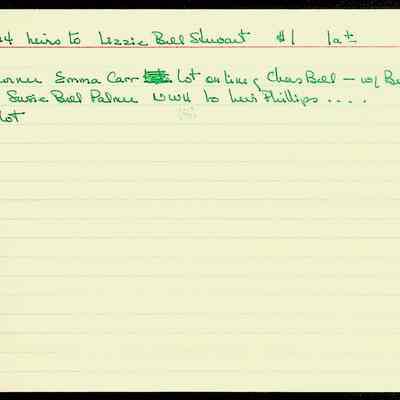 4 heirs to Lizzie Bell Stewart $1 lot
corner Emma Carr lot on line of Chas Bell - w/ Be
Susie Bell Palmer now to heirs Phillips ....
lot